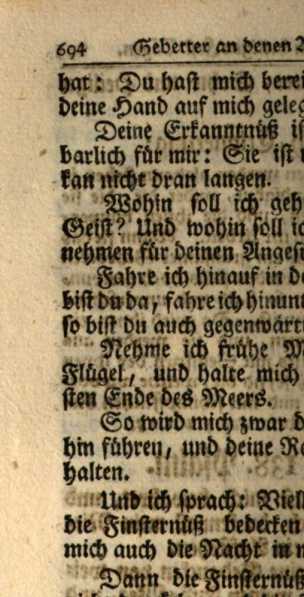 694 Gebetter an denen
hat: Du hast mich berei
deine Hand auf mich geleg
Deine Erkanntnüß is
barlich für mir: Sie ist
kan nicht dran langen.
Wohin soll ich geh
Geist? Und wohin soll ic
nehmen für deinen Anges
Fahre ich hinauf in de
bist du da, fahre ich hinunt
so bist du auch gegenwärt
Nehme ich frühe M
Flügel, und halte mich
sten Ende des Meers.
So wird mich zwar d
hin führen, und deine Re
halten.
Und ich sprach: Viell
die Finsternüß bedecken
mich auch die Nacht in m
Dann die Finsternüß